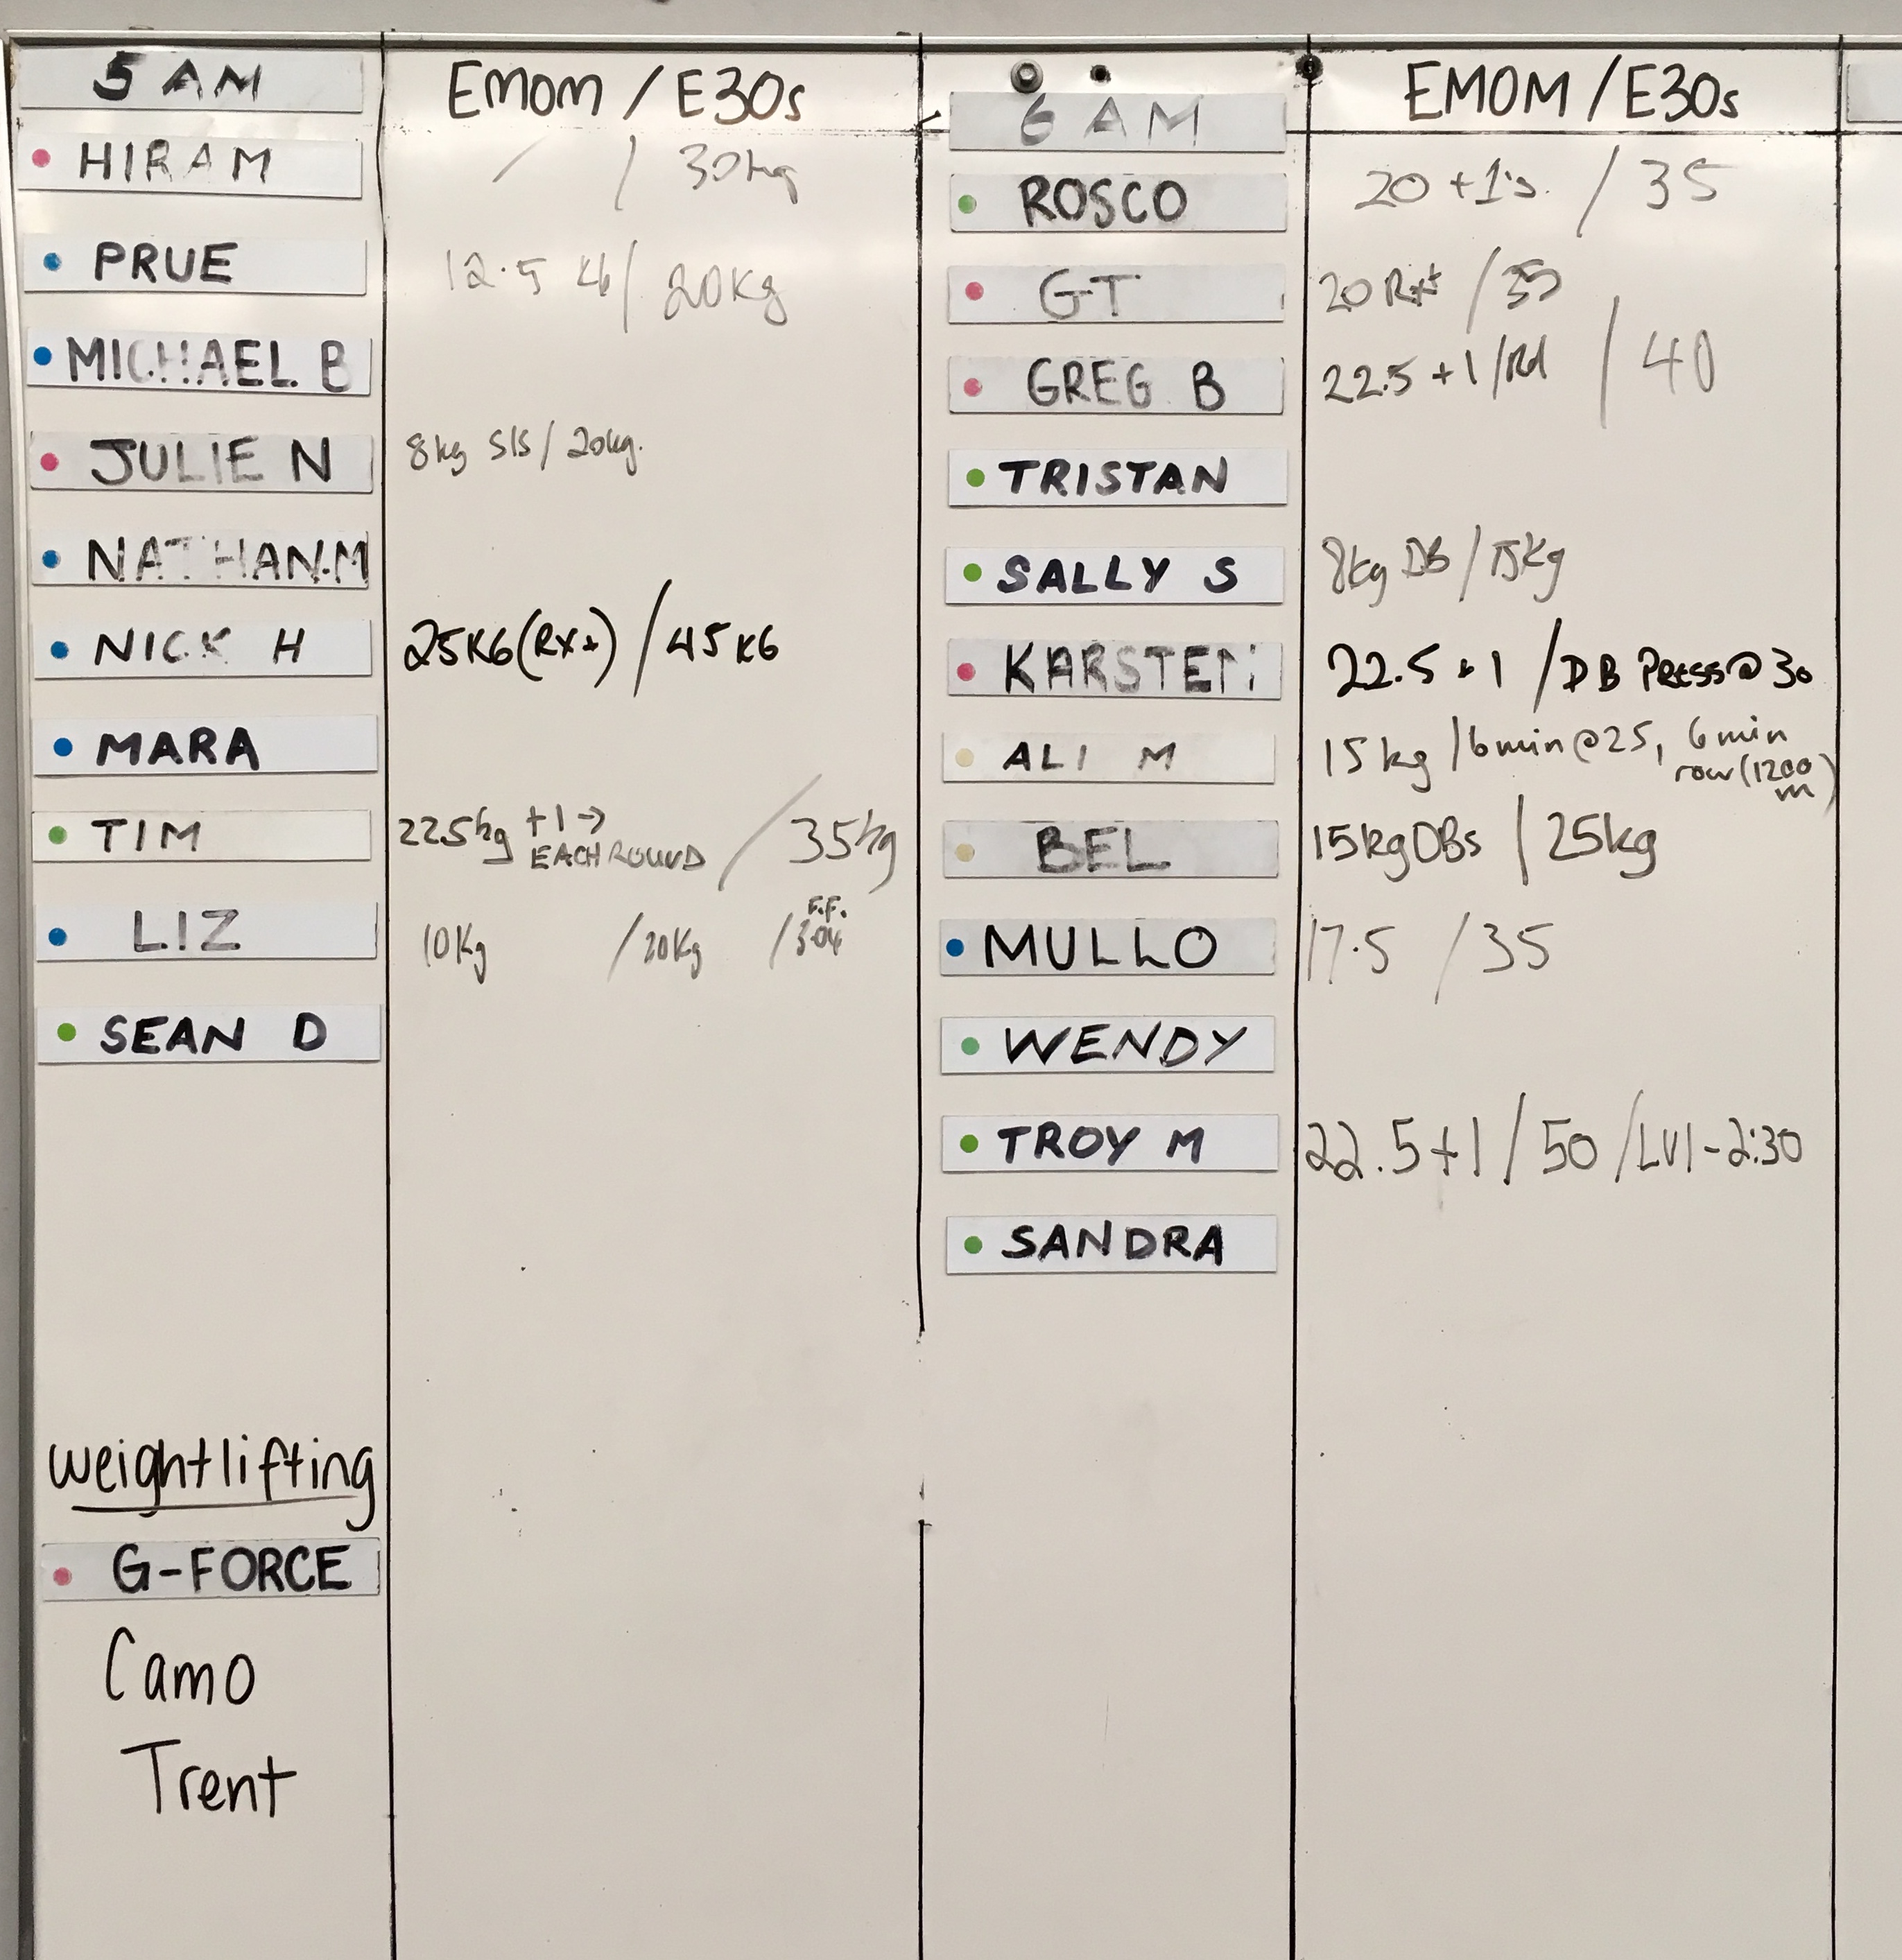 5 AM EMOM / E30s
HIRAM / / 30kg
PRUE 12.5 KG / 20Kg
MICHAEL B
JULIE N 8kg SIS / 20kg.
NATHAN.M
NICK H 25KG (RX+) / 45 KG
MARA
TIM 22.5kg +1 → EACH ROUND / 35kg
LIZ 10Kg / 20Kg / F.F. 3:04
SEAN D
weightlifting
G-FORCE
Camo
Trent
6 AM EMOM / E30s
ROSCO 20 +1's. / 35
GT 20 Rx+ / 35
GREG B 22.5 +1 / Rd / 40
TRISTAN
SALLY S 8kg DB / 15kg
KARSTEN 22.5 + 1 / DB PRESS @ 30
ALI M 15 kg / 6 min @ 25, 6 min
row (1200 m)
BEL 15kg DBs / 25kg
MULLO 17.5 / 35
WENDY
TROY M 22.5 +1 / 50 / LV1 - 2:30
SANDRA